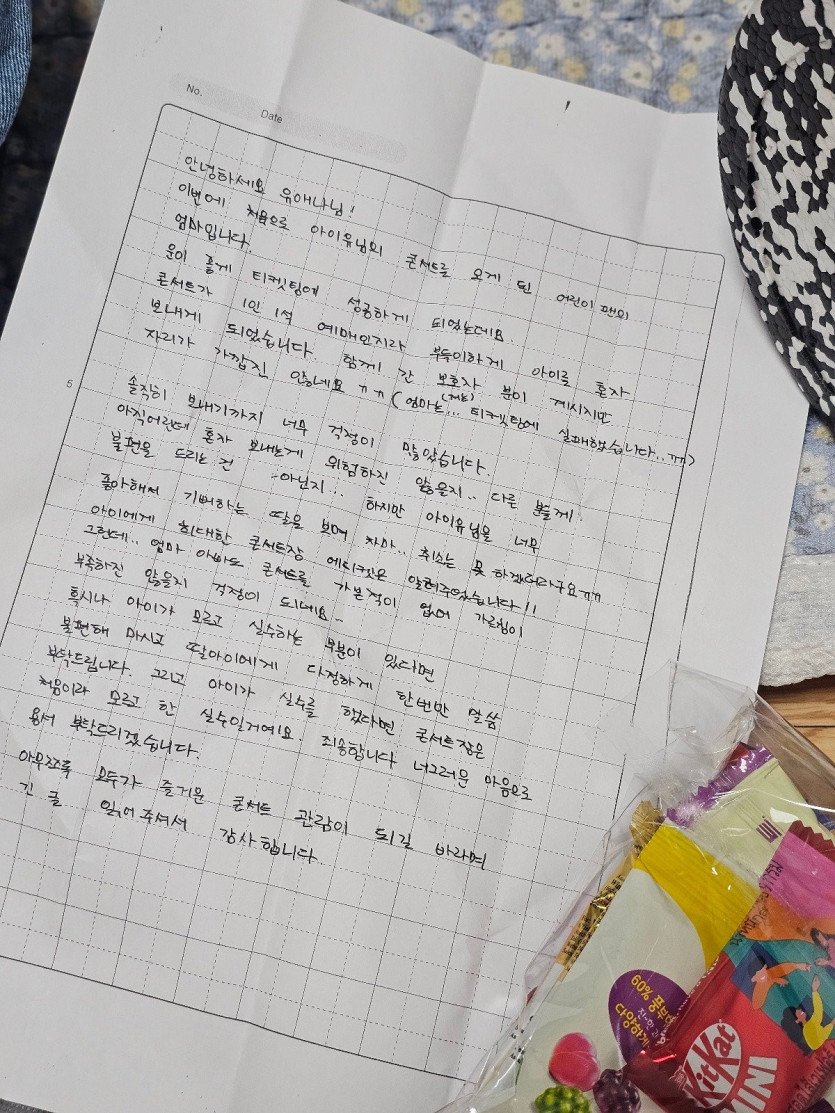 No.
Date
안녕하세요 유애나님!
이번에 처음으로 아이유님의 콘서트를 오게 된 어린이 팬의
엄마입니다.
운이 좋게 티켓팅에 성공하게 되었는데요.
콘서트가 1인 1석 예매인지라 부득이하게 아이를 혼자
보내게 되었습니다. 함께 간 보호자 분이 계시지만
자리가 가깝진 않네요 ㅠㅠ (엄마는... (저는) 티켓팅에 실패했습니다..ㅠㅠ)
5
솔직히 보내기까지 너무 걱정이 많았습니다.
아직어린데 혼자 보내는게 위험하진 않을지.. 다른 분들께
불편을 드리는 건 아닌지... 하지만 아이유님을 너무
좋아해서 기뻐하는 딸을 보며 차마.. 취소는 못 하겠더라구요ㅠㅠ
아이에게 최대한 콘서트장 에티켓은 알려주었습니다!!
그런데.. 엄마 아빠도 콘서트를 가본적이 없어 가르침이
부족하진 않을지 걱정이 되네요..
혹시나 아이가 모르고 실수하는 부분이 있다면
불편해 마시고 딸아이에게 다정하게 한번만 말씀
부탁드립니다. 그리고 아이가 실수를 했다면 콘서트장은
처음이라 모르고 한 실수일거예요. 죄송합니다 너그러운 마음으로
용서 부탁드리겠습니다.
아무쪼록 모두가 즐거운 콘서트 관람이 되길 바라며
긴 글 읽어주셔서 감사합니다.
60% 풍부
다양하게
KitKat
MINI